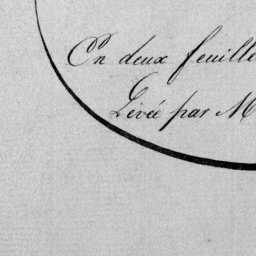 En deux feuille
Levée par M